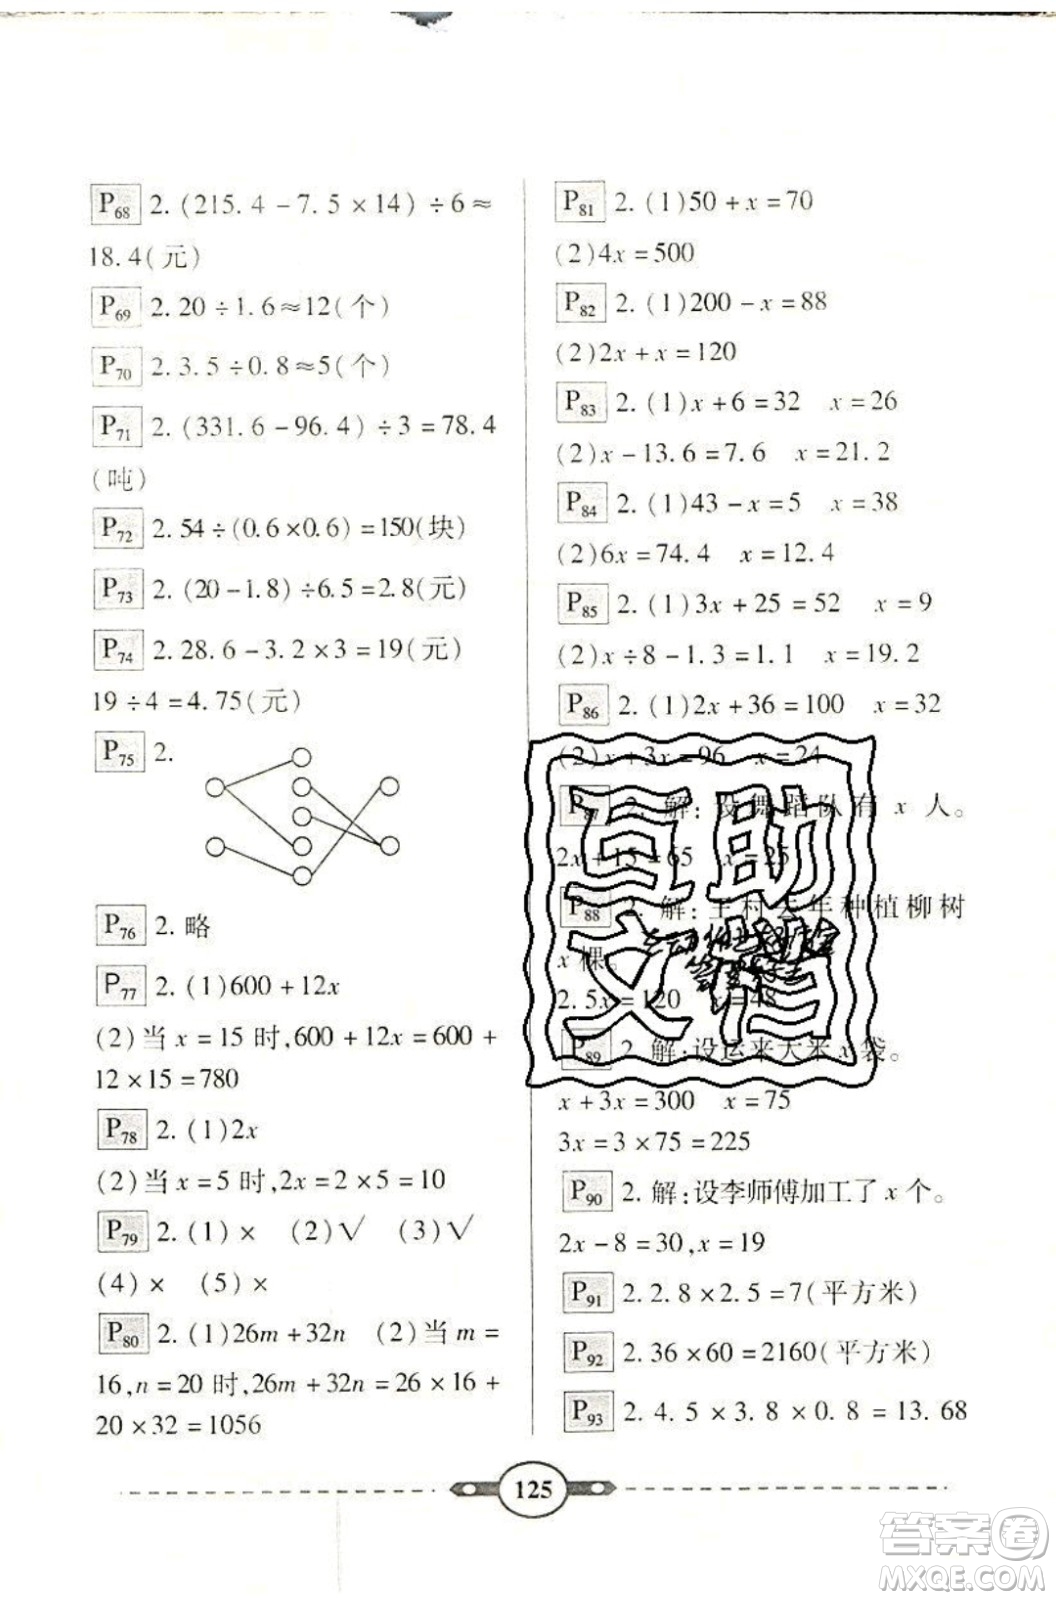 P68 2. (215. 4 - 7. 5 × 14) ÷ 6 ≈
18. 4(元)
P69 2. 20 ÷ 1. 6 ≈ 12(个)
P70 2. 3. 5 ÷ 0. 8 ≈ 5(个)
P71 2. (331. 6 - 96. 4) ÷ 3 = 78. 4
(吨)
P72 2. 54 ÷ (0. 6 × 0. 6) = 150(块)
P73 2. (20 - 1. 8) ÷ 6. 5 = 2. 8(元)
P74 2. 28. 6 - 3. 2 × 3 = 19(元)
19 ÷ 4 = 4. 75(元)
P75 2.
P76 2. 略
P77 2. (1)600 + 12x
(2)当 x = 15 时,600 + 12x = 600 +
12 × 15 = 780
P78 2. (1)2x
(2)当 x = 5 时,2x = 2 × 5 = 10
P79 2. (1) × (2)√ (3)√
(4) × (5) ×
P80 2. (1)26m + 32n (2)当 m =
16,n = 20 时,26m + 32n = 26 × 16 +
20 × 32 = 1056
P81 2. (1)50 + x = 70
(2)4x = 500
P82 2. (1)200 - x = 88
(2)2x + x = 120
P83 2. (1)x + 6 = 32 x = 26
(2)x - 13. 6 = 7. 6 x = 21. 2
P84 2. (1)43 - x = 5 x = 38
(2)6x = 74. 4 x = 12. 4
P85 2. (1)3x + 25 = 52 x = 9
(2)x ÷ 8 - 1. 3 = 1. 1 x = 19. 2
P86 2. (1)2x + 36 = 100 x = 32
(2)x + 3x = 96 x = 24
P87 2. 解:设舞蹈队有 x 人。
2x + 15 = 65 x = 25
P88 2. 解:王村去年种植柳树
x 棵
2. 5x = 120 x = 48
P89 2. 解:设运来大米 x 袋。
x + 3x = 300 x = 75
3x = 3 × 75 = 225
P90 2. 解:设李师傅加工了 x 个。
2x - 8 = 30,x = 19
P91 2. 2. 8 × 2. 5 = 7(平方米)
P92 2. 36 × 60 = 2160(平方米)
P93 2. 4. 5 × 3. 8 × 0. 8 = 13. 68
互助
文档
125
答案圈
MXQE.COM